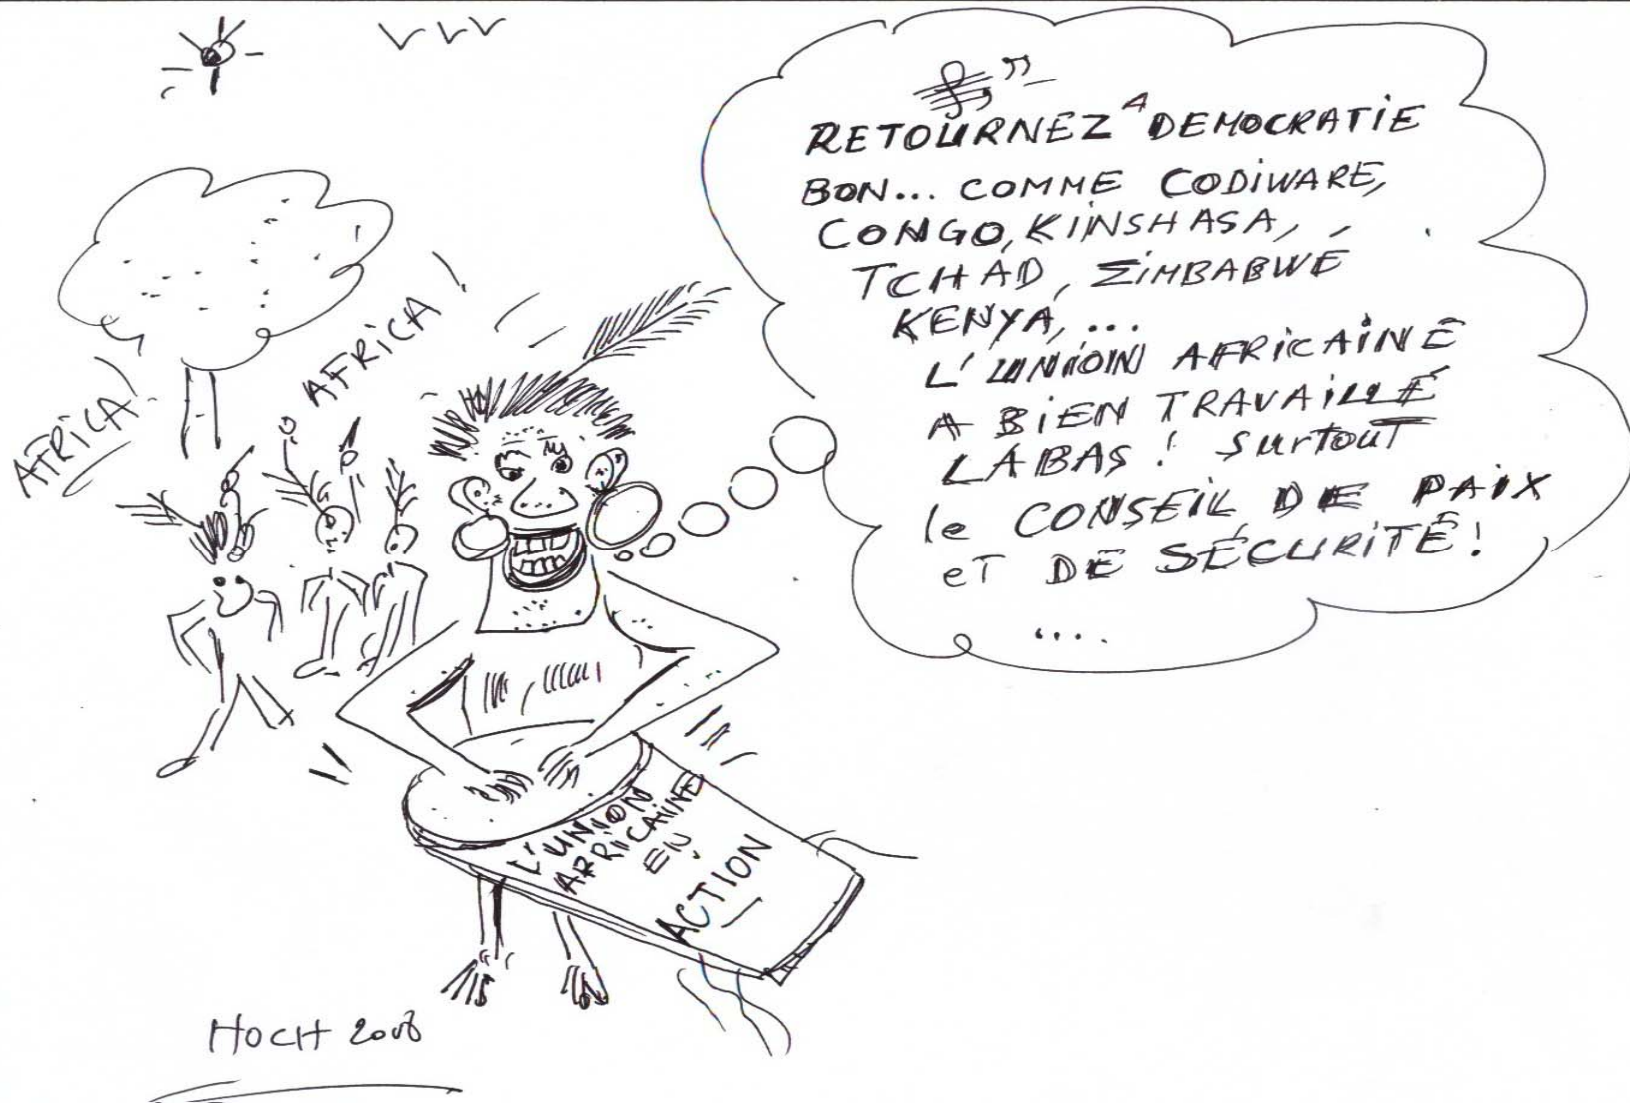 RETOURNEZ A DEMOCRATIE
BON... COMME CODIWARE,
CONGO, KINSHASA,
TCHAD, ZIMBABWE
KENYA, ...
L'UNION AFRICAINE
A BIEN TRAVAILLÉ
LABAS ! SURTOUT
le CONSEIL DE PAIX
eT DE SÉCURITÉ !
....
AFRICA !
AFRICA !
L'UNION
AFRICAINE
EN
ACTION
HOCH 2008